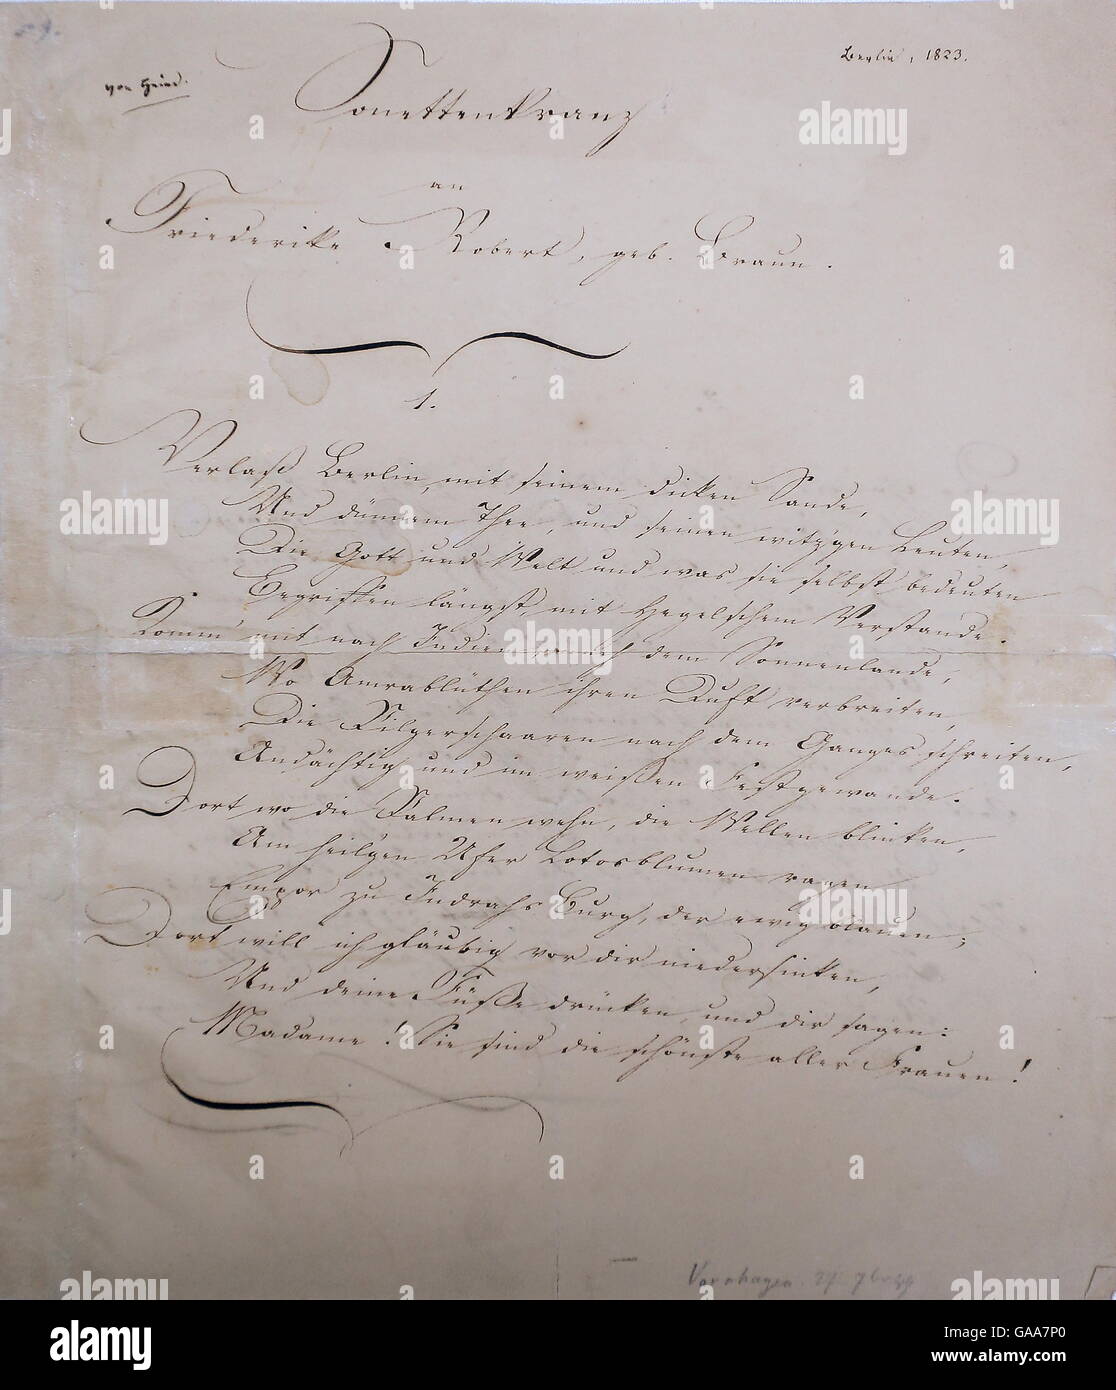 Berlin, 1823.
von Heine.
Sonettenkranz
an
Friederike Robert, geb. Braun.
1.
Verlaß Berlin, mit seinem dicken Sande,
Und dünnem Thee, und seinen witz'gen Leuten,
Die Gott und Welt und was sie selbst bedeuten
Begriffen längst, mit Hegelschem Verstande.
Komm' mit nach Indien, nach dem Sonnenlande,
Wo Amrablüthen ihren Duft verbreiten,
Die Pilgerschaaren nach dem Ganges schreiten,
Andächtig und im weißen Festgewande.
Dort wo die Palmen wehn, die Wellen blinken,
Am heil'gen Ufer Lotosblumen ragen
Empor zu Indrahs Burg, der ewig blauen;
Dort will ich gläubig vor dir niedersinken,
Und deine Füße drücken, und dir sagen:
Madame! Sie sind die schönste aller Frauen!
Varnhagen.
alamy
a
GAA7P0
www.alamy.com